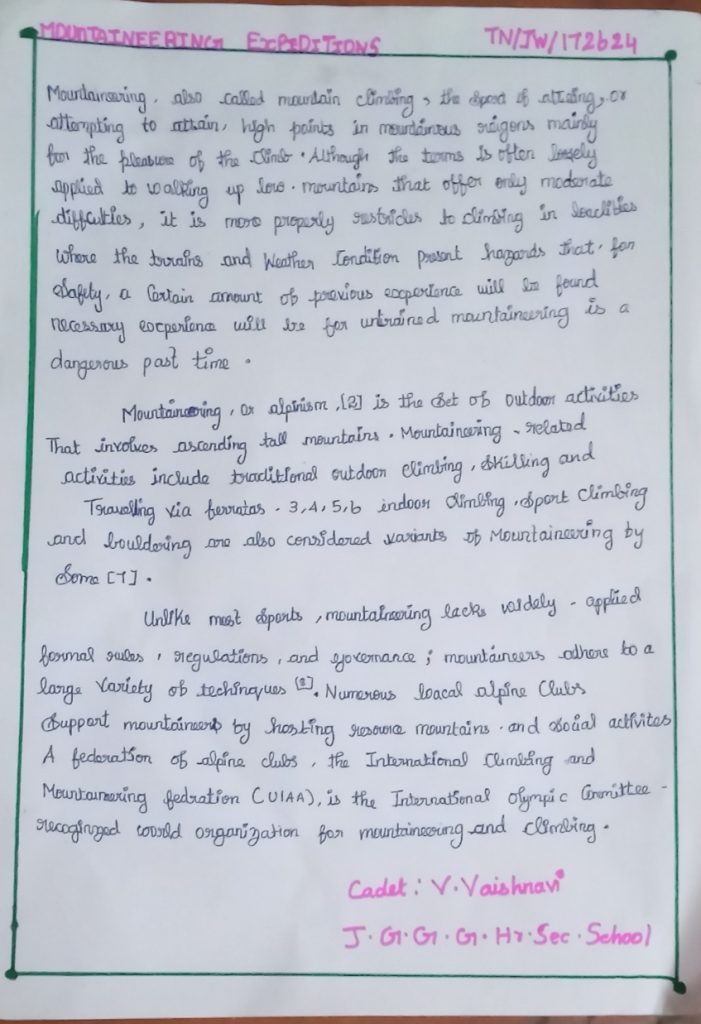 MOUNTAINEERING EXPEDITIONS
TN/JW/172624
Mountaineering, also called mountain climbing, the Sport of attaing, or
attempting to attain, high points in mountainous reigons mainly
for the pleasure of the climb. Although the terms Is often loosely
applied to walking up low. mountains that offer only moderate
difficulties, it is more properly restrides to climbing in loaclities
Where the trrains and Weather Condition present hazards that, for
Safety, a Certain amount of previous experience will be found
necessary experience will be for untrained mountaineering is a
dangerous past time.
Mountaineering, Or alpinism,[2] is the Set of Outdoor activities
That involves ascending tall mountains. Mountaineering - related
activities include traditional outdoor climbing, Skilling and
Travelling via ferratas. 3,4,5,6 indoor climbing, Sport Climbing
and bouldering are also considered variants of Mountaineering by
Some [7].
Unlike most Sports, mountaineering lacks widely - applied
formal rules, regulations, and governance; mountaineers adhere to a
large Variety of techinques [8]. Numerous loacal alpine Clubs
Support mountaineers by hosting resource mountains. and Social activites
A federation of alpine clubs, the International Climbing and
Mountaineering fedration (UIAA), is the International olympic Committee -
recoginzed world organization for mountaineering and climbing.
Cadet: V.Vaishnavi
J.G.G.G.Hr.Sec.School